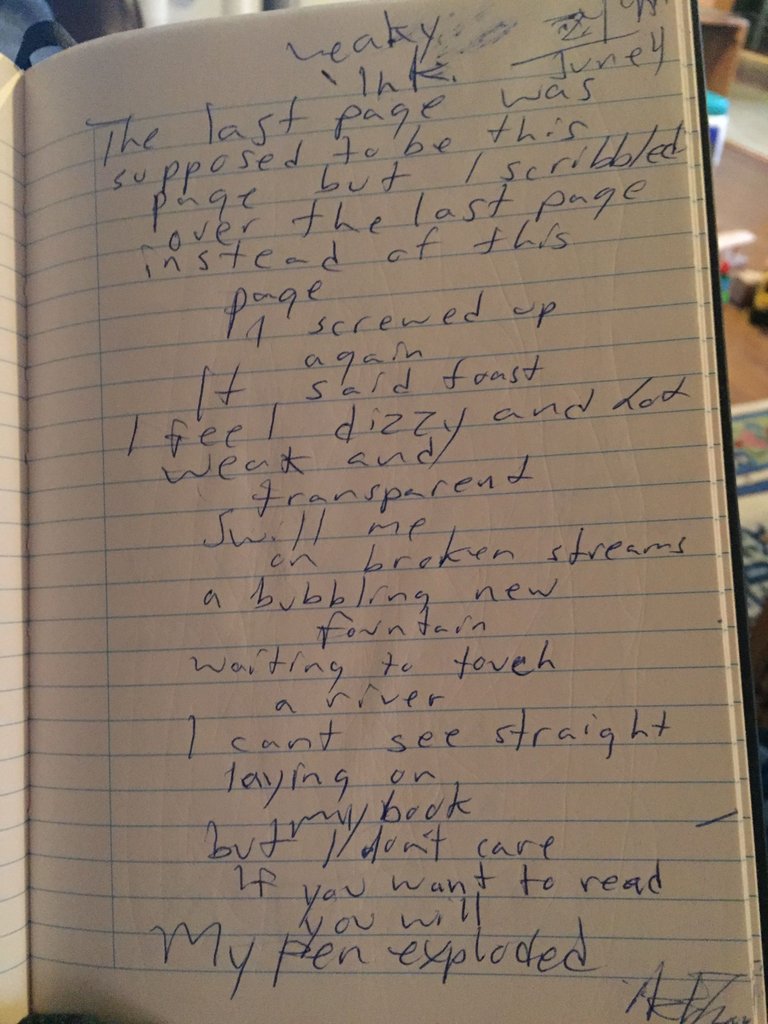 Leaky
Ink.
June 4
The last page was
supposed to be this
page but I scribbled
over the last page
instead of this
page
I screwed up
again
It said toast
I feel dizzy and hot
weak and
transparent
Swill me
on broken streams
a bubbling new
fountain
waiting to touch
a river
I cant see straight
laying on
my book
but I don't care
If you want to read
you will
My pen exploded